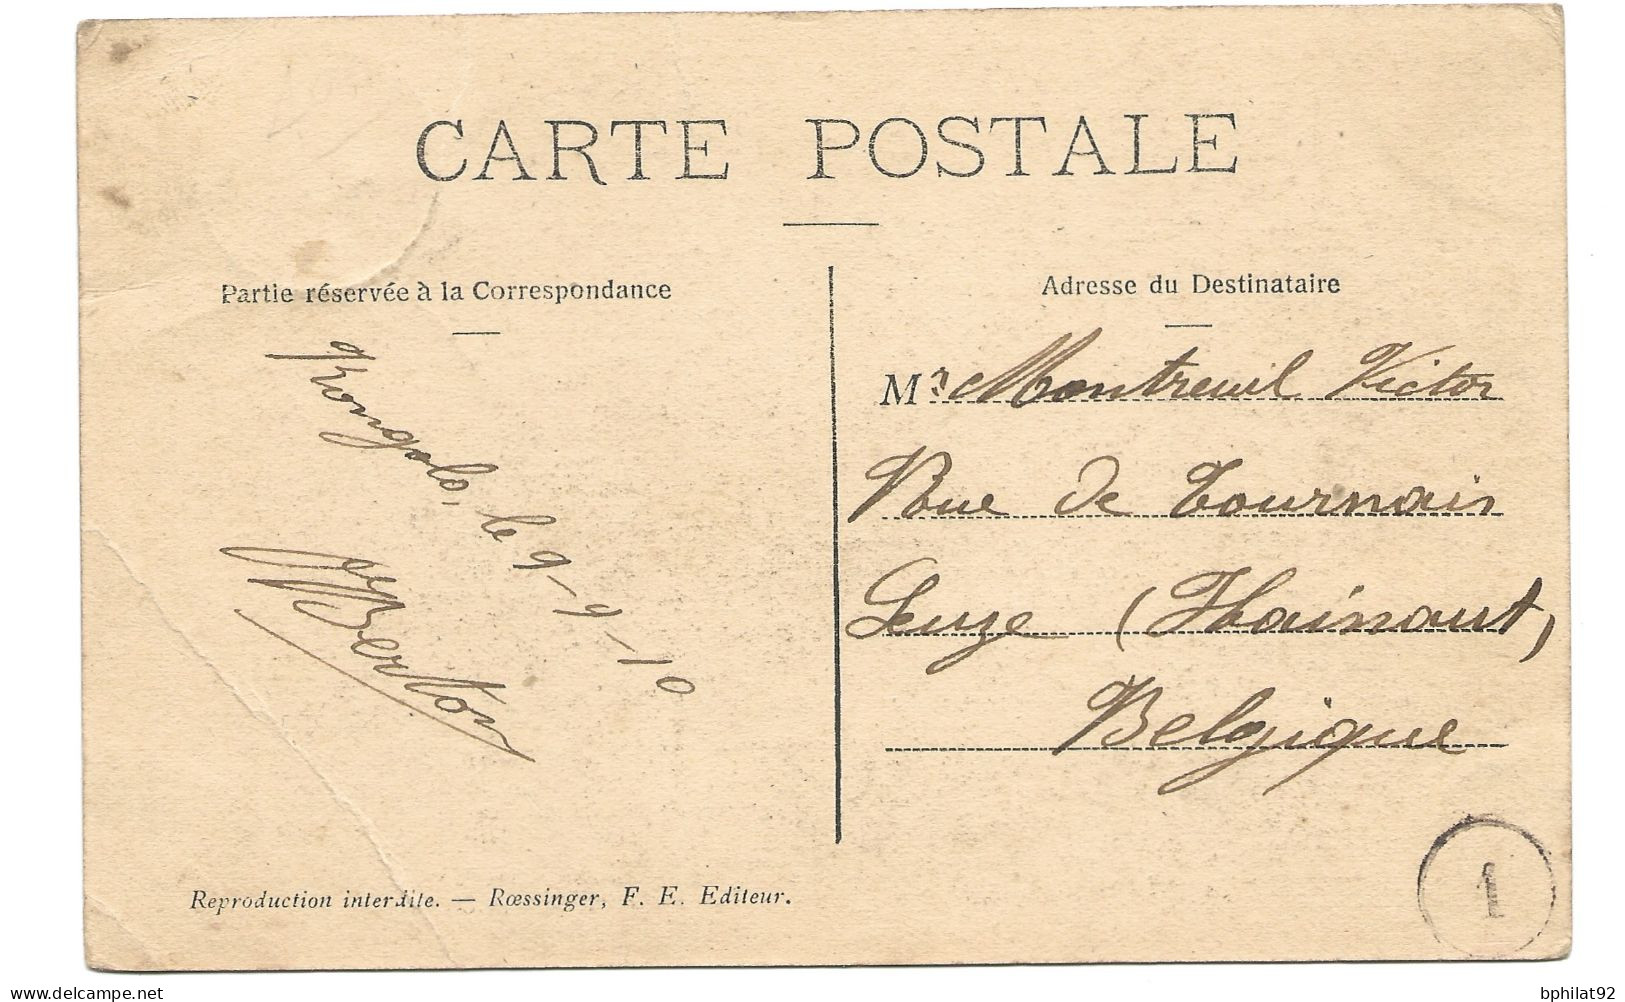 CARTE POSTALE
Partie réservée à la Correspondance
Kongolo, le 9-9-10
Berton
Adresse du Destinataire
Mr Montreuil Victor
Rue de Tournai
Leuze (Hainaut)
Belgique
1
Reproduction interdite. — Rœssinger, F. E. Editeur.
delcampe.net
bphilat92